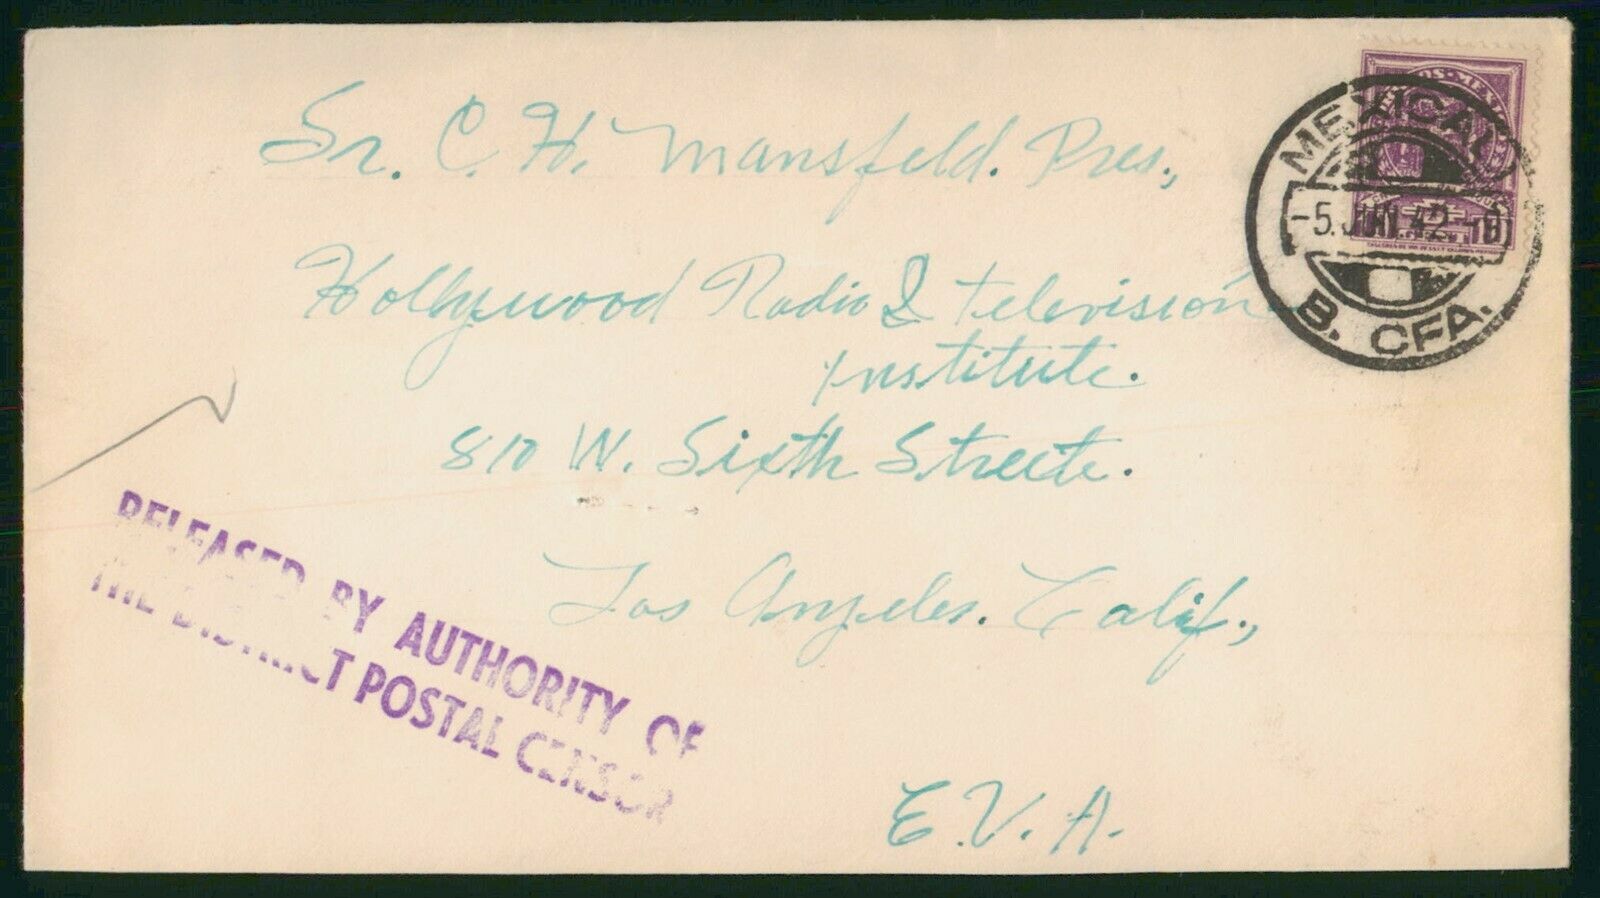 Sr. C. H. Mansfeld. Pres.,
Hollywood Radio & Television
Institute.
810 W. Sixth Streete.
Los Angeles. Calif.,
E.V.A.
MEXICALI
-5. JUN. 42.
B. CFA.
RELEASED BY AUTHORITY OF
THE DISTRICT POSTAL CENSOR